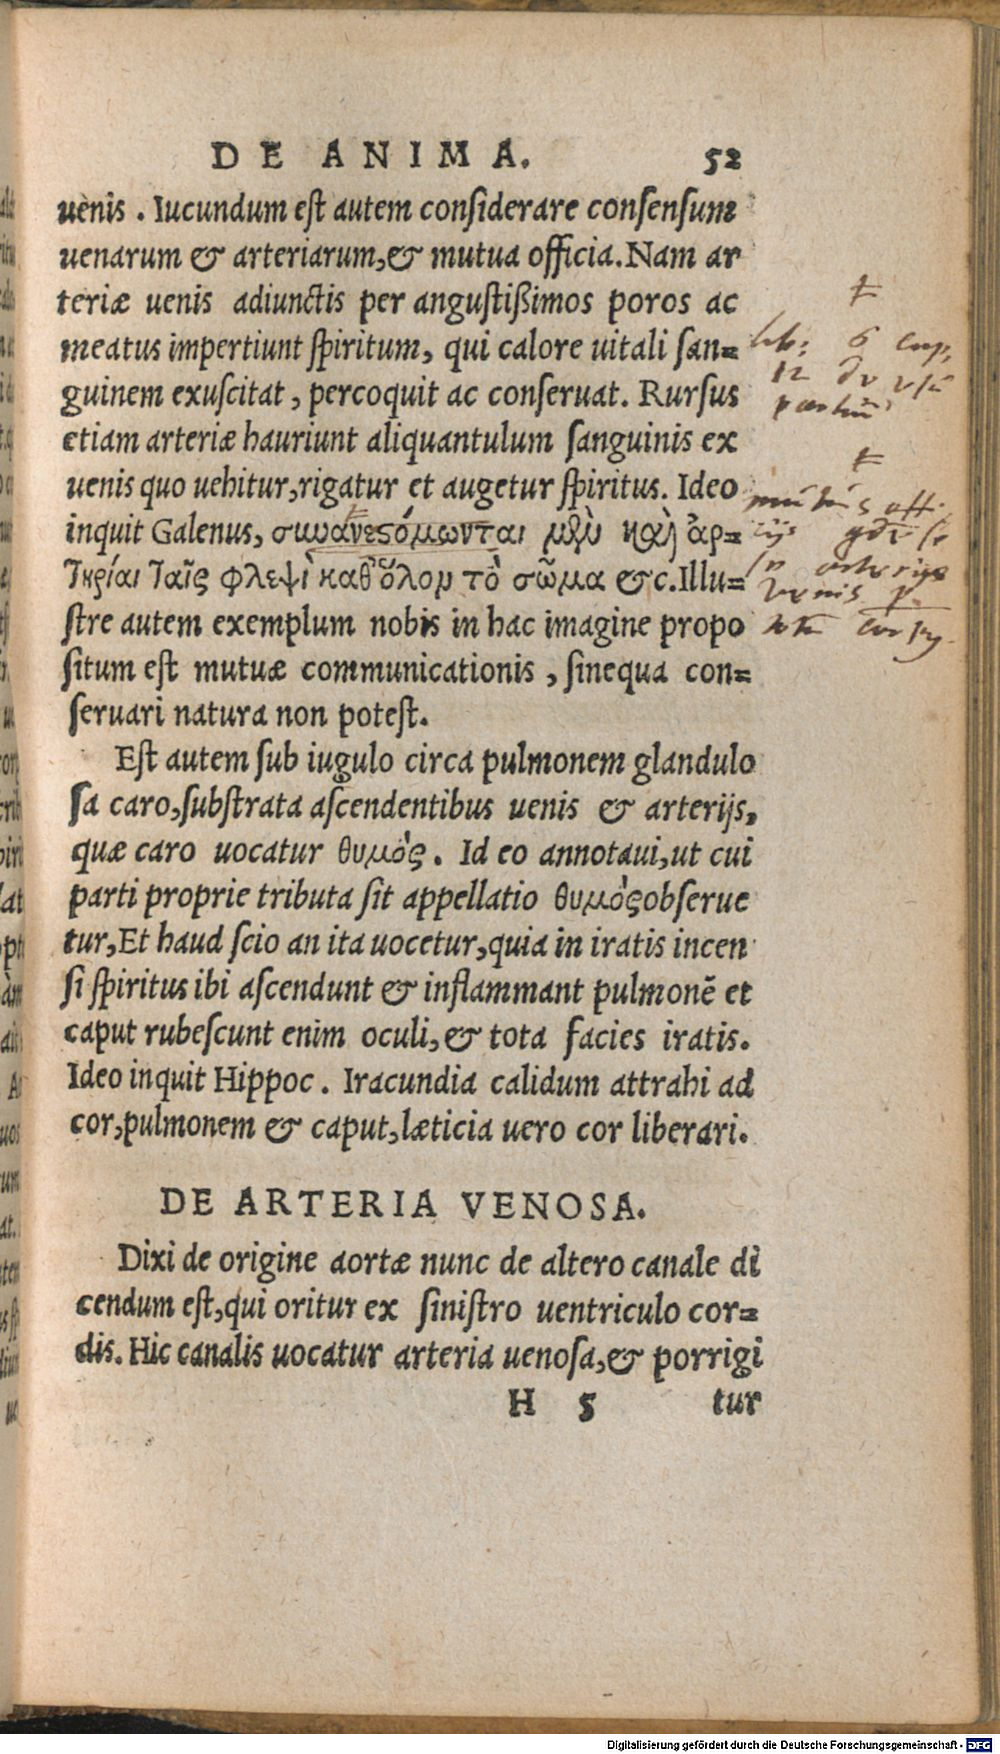 DE ANIMA. 52
uenis . Iucundum eſt autem conſiderare conſenſum
uenarum & arteriarum,& mutua officia.Nam ar
teriæ uenis adiunctis per anguſtißimos poros ac
meatus impertiunt ſpiritum, qui calore uitali ſan=
guinem exuſcitat , percoquit ac conſeruat. Rurſus
etiam arteriæ hauriunt aliquantulum ſanguinis ex
uenis quo uehitur,rigatur et augetur ſpiritus. Ideo
inquit Galenus, μὲν καὶ ἀρ=
τηρίαι ταῖς φλεψὶ καθ᾽ὅλον τὸ σῶμα &c.Illu=
ſtre autem exemplum nobis in hac imagine propo
ſitum eſt mutuæ communicationis , ſinequa con=
ſeruari natura non poteſt.
Eſt autem ſub iugulo circa pulmonem glandulo
ſa caro,ſubſtrata aſcendentibus uenis & arterijs,
quæ caro uocatur θυμὸς. Id eo annotaui,ut cui
parti proprie tributa ſit appellatio θυμὸς obſerue
tur,Et haud ſcio an ita uocetur,quia in iratis incen
ſi ſpiritus ibi aſcendunt & inflammant pulmonẽ et
caput rubeſcunt enim oculi,& tota facies iratis.
Ideo inquit Hippoc . Iracundia calidum attrahi ad
cor,pulmonem & caput,læticia uero cor liberari.
DE ARTERIA VENOSA.
Dixi de origine aortæ nunc de altero canale di
cendum eſt,qui oritur ex ſiniſtro uentriculo cor=
dis. Hic canalis uocatur arteria uenoſa,& porrigi
H 5 tur
lib: 6 cap.
12 de vſu
partiū
Digitalisierung gefördert durch die Deutsche Forschungsgemeinschaft - DFG